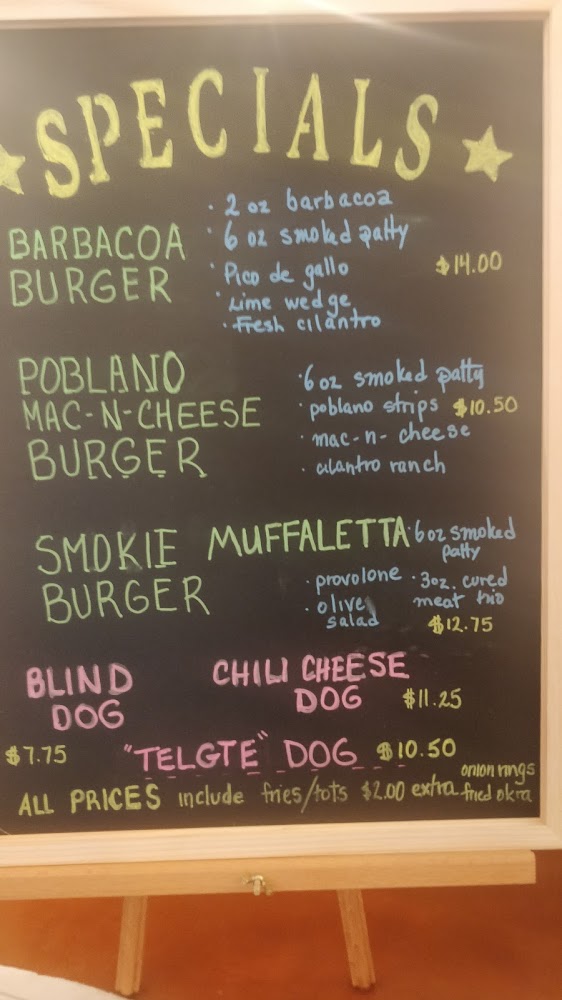 SPECIALS
BARBACOA
BURGER
· 2 oz barbacoa
· 6 oz smoked patty
· Pico de gallo
· Lime wedge
· Fresh cilantro
$14.00
POBLANO
MAC-N-CHEESE
BURGER
· 6 oz smoked patty
· poblano strips $10.50
· mac-n-cheese
· cilantro ranch
SMOKIE MUFFALETTA
BURGER
· 6 oz smoked
patty
· provolone · 3oz. cured
meat trio
· olive
salad
$12.75
BLIND
DOG
$7.75
CHILI CHEESE
DOG $11.25
"TELGTE" DOG $10.50
ALL PRICES include fries/tots $2.00 extra onion rings
fried okra